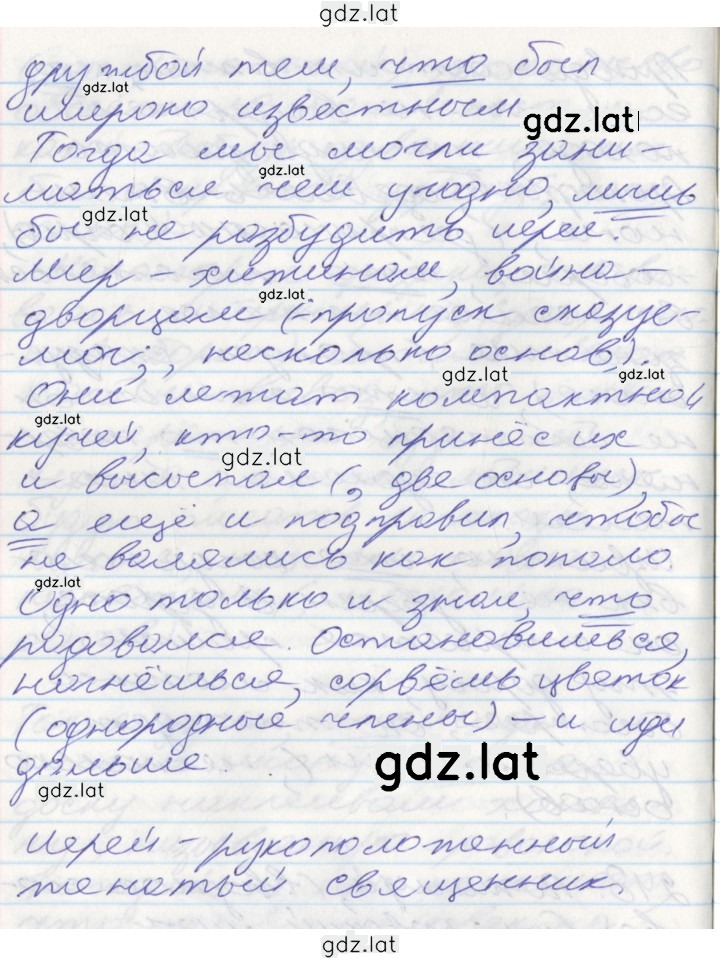 gdz.lat
дружбой тем, что был
gdz.lat
широко известным.
gdz.lat
Тогда мы могли зани-
gdz.lat
маться чем угодно, лишь
gdz.lat
бы не разбудить иерея.
Мир - хижинам, война -
gdz.lat
дворцам (-пропуск сказуе-
мог; , несколько основ).
gdz.lat
gdz.lat
Они лежат компактной
gdz.lat
кучей, кто-то принёс их
gdz.lat
и высыпал (, две основы),
а ещё и подправил, чтобы
не валялись как попало.
gdz.lat
Одно только и знал, что
радовался. Остановишься,
нагнёшься, сорвёшь цветок
(однородные члены) - и иди
дальше.
gdz.lat
gdz.lat
Иерей - рукоположенный
женатый священник.
gdz.lat